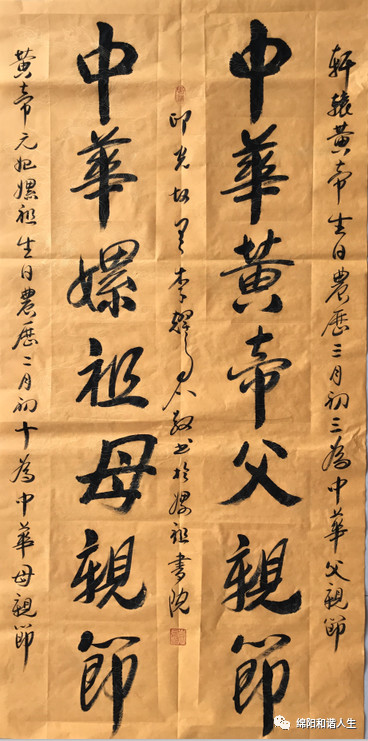 軒轅黃帝生日農歷三月初三為中華父親節
中華黃帝父親節
光故里李君敬書於嫘祖書院
中華嫘祖母親節
黃帝元妃嫘祖生日農歷二月初十為中華母親節
绵阳和谐人生